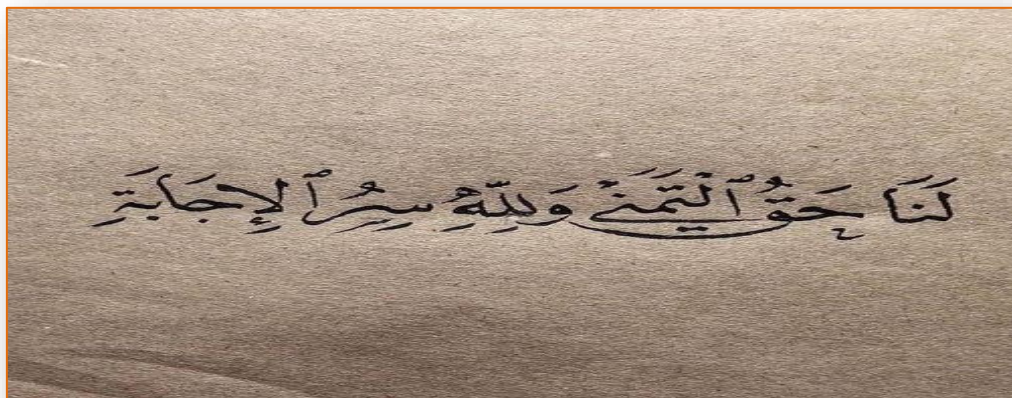 لَنَا حَقُّ ٱلْتَمَنِّي وَلِلّٰهِ سِرُّ ٱلْإِجَابَةِ